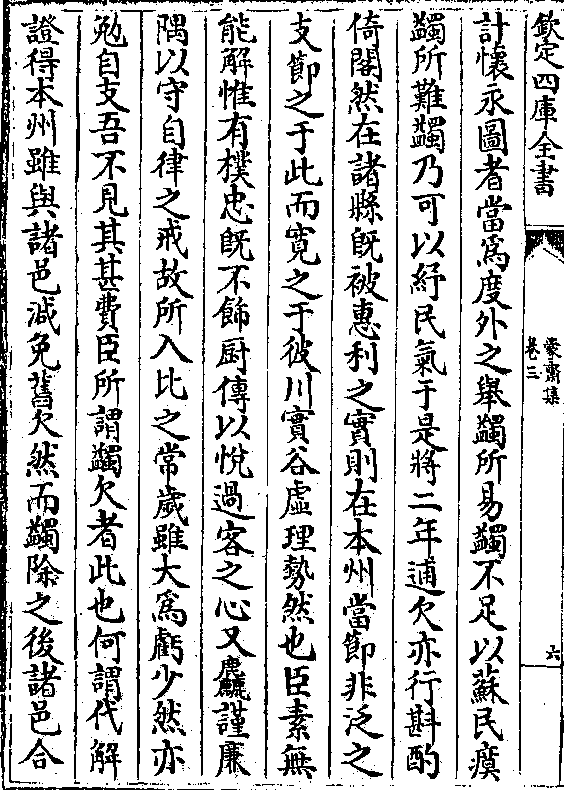 欽定四庫全書
蒙齋集
卷三
六
計懷永圖者當爲度外之舉蠲所易蠲不足以蘇民瘼
蠲所難蠲乃可以紓民氣于是將二年逋欠亦行斟酌
倚閣然在諸縣既被惠利之實則在本州當節非泛之
支節之于此而寛之于彼川實谷虛理勢然也臣素無
能解惟有樸忠既不飾厨傳以悅過客之心又麤謹廉
隅以守自律之戒故所入比之常歲雖大爲虧少然亦
勉自支吾不見其甚費臣所謂蠲欠者此也何謂代解
證得本州雖與諸邑減免舊欠然而蠲除之後諸邑合